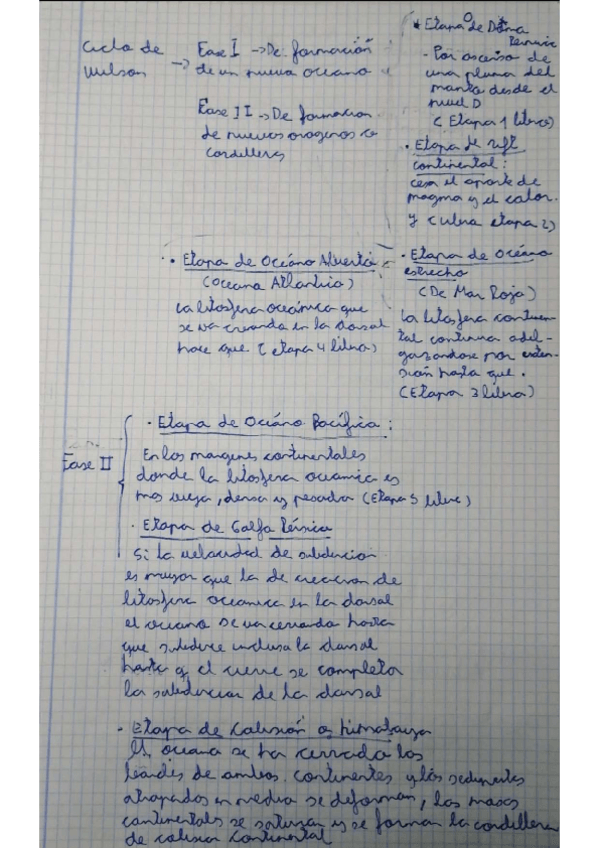 Ciclo de
Wilson
Fase I → De formación
de un nuevo océano
Fase II → De formacion
de nuevos orogenos o
cordilleras
* Etapa de Domo
Térmico
- Por ascenso de
una pluma del
manto desde el
nivel D
(Etapa 1 libro)
· Etapa de rift
continental:
cesa el aporte de
magma y el calor.
y (libro etapa 2)
· Etapa de Océano
estrecho
(De Mar Rojo)
La litosfera continen-
tal continua adel-
gazandose por exten-
sión hasta que.
(Etapa 3 libro)
· Etapa de Océano Abierto
(Oceano Atlantico)
La litosfera oceánica que
se va creando en la dorsal
hace que (etapa 4 libro)
Fase II
· Etapa de Océano Pacífico:
En los margenes continentales
donde la litosfera oceanica es
mas vieja, densa y pesada (Etapa 5 libro)
· Etapa de Golfo Pérsico
Si la velocidad de subducion
es mayor que la de creacion de
litosfera oceanica en la dorsal
el oceano se va cerrando hasta
que subduce incluso la dorsal
hasta q el cierre se completa
la subducion de la dorsal
· Etapa de Colisión o himalaya
El oceano se ha cerrado los
bordes de ambos continentes y los sedimentos
atrapados en medio se deforman, las masas
continentales se suturan y se forman la cordillera
de colision continental